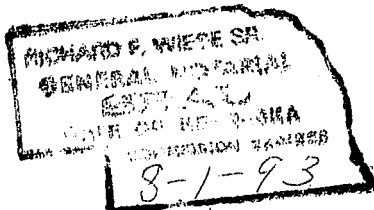 RICHARD F. WIESE SR.
GENERAL NOTARIAL
SEAL
STATE OF NEBRASKA
COMMISSION EXPIRES
8-1-93